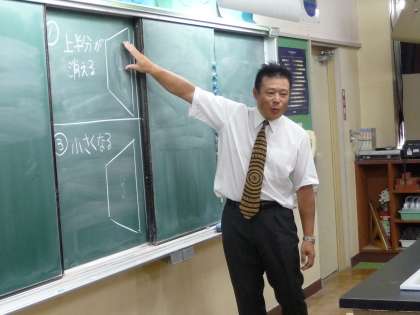 ① 上半分が
消える
③ 小さくなる